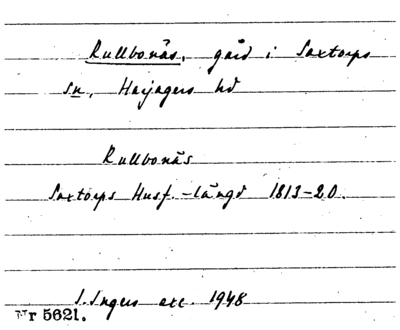 Rullbonäs, gård i Saxtorps
sn, Harjagers hd
Rullbonäs
Saxtorps Husf.-längd 1813-20.
I. Ingers exc. 1948
Nr 5621.